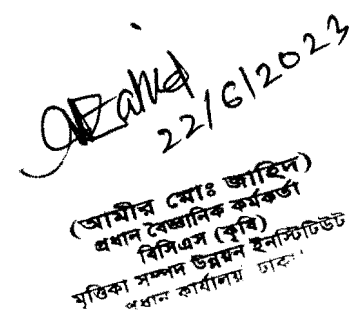 AZahid
22/6/2023
(আমীর মোঃ জাহিদ)
প্রধান বৈজ্ঞানিক কর্মকর্তা
বিসিএস (কৃষি)
মৃত্তিকা সম্পদ উন্নয়ন ইনস্টিটিউট
প্রধান কার্যালয় ঢাকা